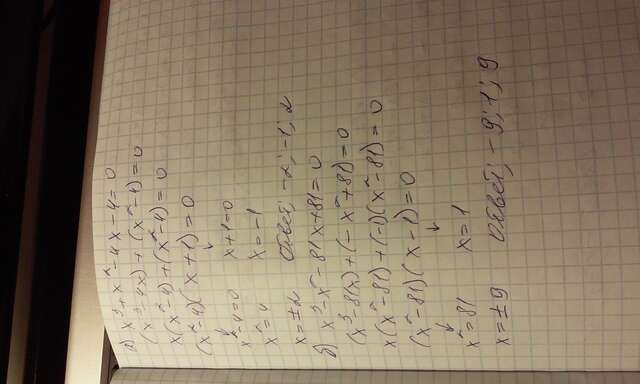 а) x³+x²-4x-4=0
(x³-4x)+(x²-4)=0
x(x²-4)+(x²-4)=0
(x²-4)(x+1)=0
x²-4=0 x+1=0
x²=4 x=-1
x=±2 Ответ: -2; -1; 2
б) x³-x²-81x+81=0
(x³-81x)+(-x²+81)=0
x(x²-81)+(-1)(x²-81)=0
(x²-81)(x-1)=0
x²=81 x=1
x=±9 Ответ: -9; 1; 9